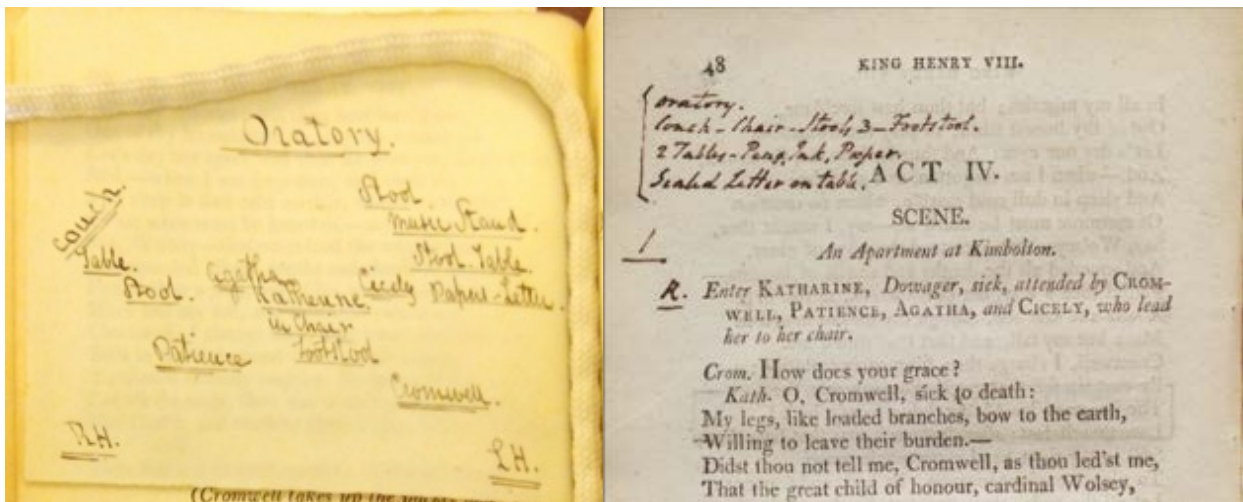 Oratory.
Couch.
Stool.
Music Stand.
Table.
Stool. Table.
Stool.
Agatha
Katherine
in Chair
Footstool
Cicely
Papers-Letter.
Patience
Cromwell.
R.H.
L.H.
(Cromwell takes up the
48
KING HENRY VIII.
Oratory.
Couch - Chair - Stools 3 - Footstool.
2 Tables - Pens, Ink, Paper.
Sealed Letter on table.
ACT IV.
SCENE.
1
An Apartment at Kimbolton.
R.
Enter KATHARINE, Dowager, sick, attended by CROM-
WELL, PATIENCE, AGATHA, and CICELY, who lead
her to her chair.
Crom. How does your grace?
Kath. O, Cromwell, sick to death:
My legs, like loaded branches, bow to the earth,
Willing to leave their burden.—
Didst thou not tell me, Cromwell, as thou led'st me,
That the great child of honour, cardinal Wolsey,